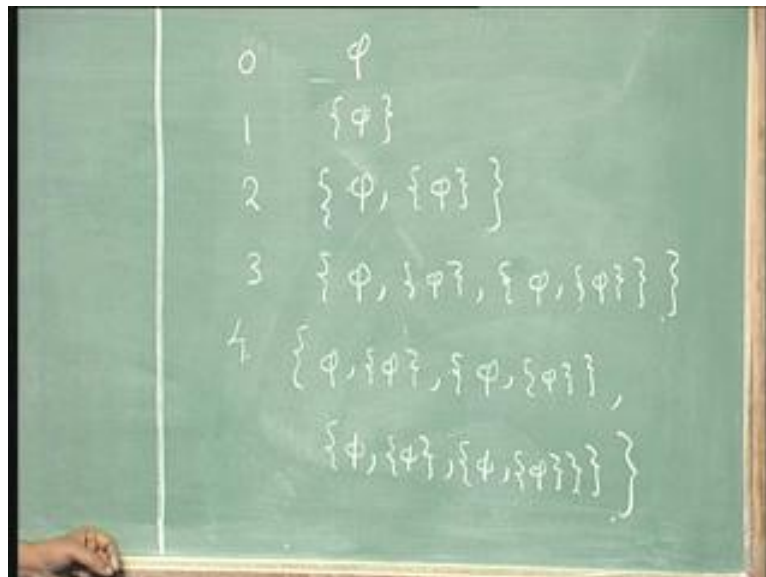 0 φ
1 {φ}
2 {φ, {φ}}
3 {φ, {φ}, {φ, {φ}}}
4 {φ, {φ}, {φ, {φ}},
{φ, {φ}, {φ, {φ}}}}